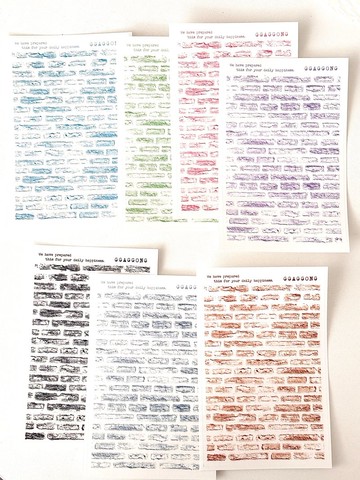 We have prepared
this for your daily happiness. GGAGGO
We have prepared
this for your dail
We have prepared GGAGGONG
this for your daily happiness.
We have prepared GGAGGONG
this for your daily happiness.
We have prepared GGAGGONG
this for your daily happiness.
We have prepared
this for your daily happiness. GGAG
We have prepared GGAGGONG
this for your daily happiness.